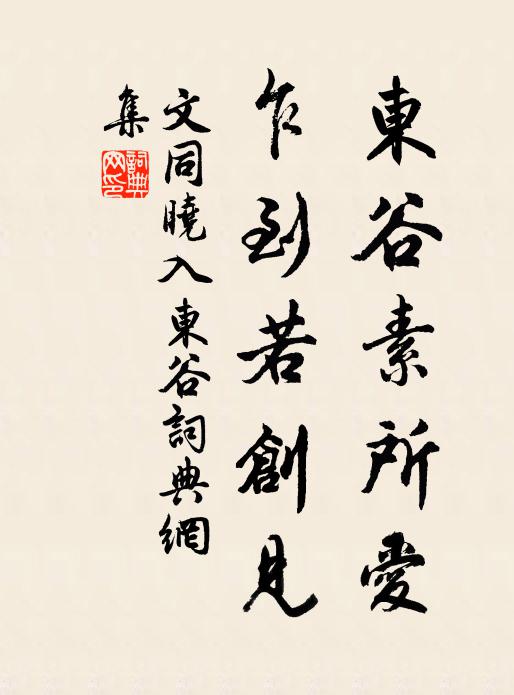 東谷素所愛
乍到若創見
文同曉入東谷詞典網
集
詞典網印